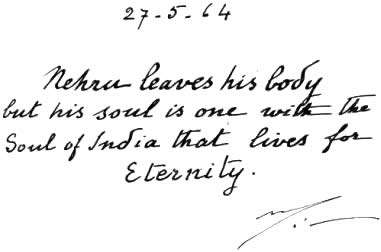 27-5-64
Nehru leaves his body
but his soul is one with the
Soul of India that lives for
Eternity.